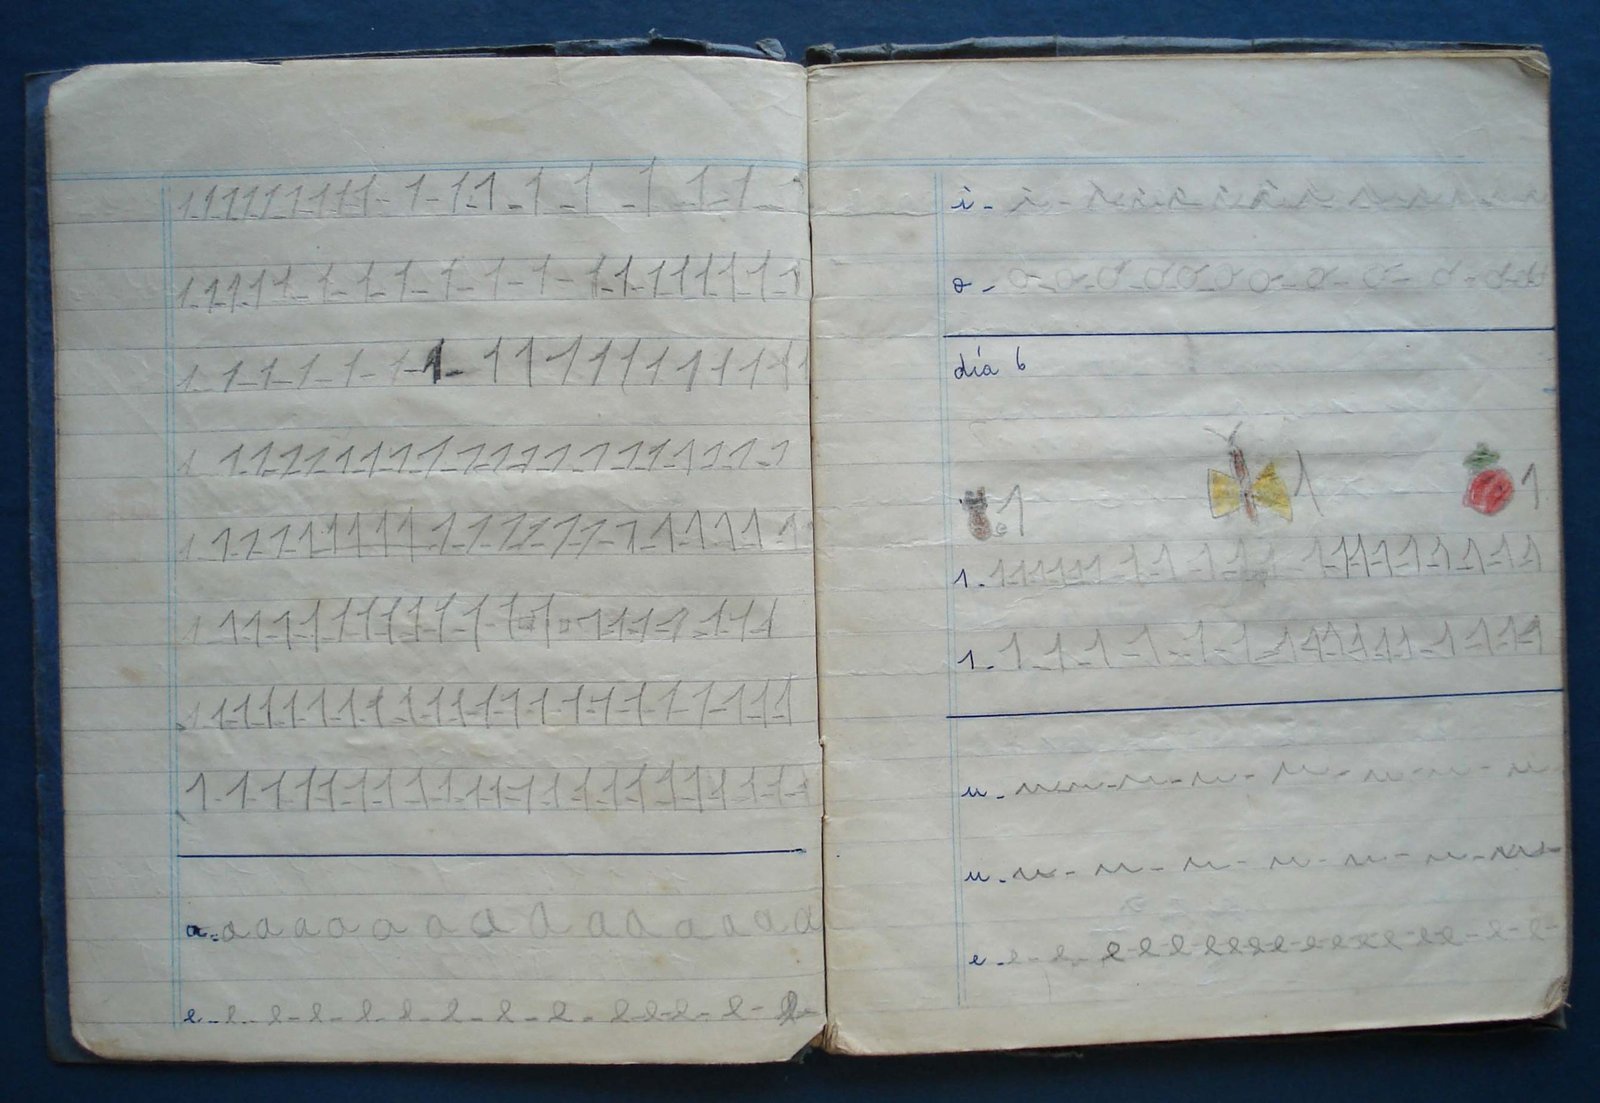 1 1 1 1 1 1 1 1 1 - 1 - 1 1 - 1 - 1 - 1 - 1 - 1 -
1 - 1 - 1 - 1 - 1 - 1 - 1 - 1 - 1 - 1 - 1 - 1 1 1 1 1 1 1
1 - 1 - 1 - 1 - 1 - 1 - 1 - 1 1 1 1 1 1 1 1 1 1 1
1 1 1 1 1 1 1 1 1 1 1 1 1 1 1 1 1 1 1 - 1
1 - 1 - 1 - 1 1 1 1 1 1 1 1 1 1 1 1 - 1 - 1 1 1 1 1
1 1 1 1 1 1 1 1 1 1 1 - 1 - 1 1 - 1 1 1 1 - 1 1 1
1 - 1 1 1 1 1 1 1 1 1 1 1 1 1 1 1 1 1 1 1 1
1 - 1 - 1 1 1 1 1 1 1 1 1 1 1 1 1 1 1 1 1 1
a - a a a a a a a a a a a a a
e - e - e - e - e - e - e - e - e - e e e - e - e -
i - i - i i i i i i i i i i i
o - o - o - o o o o o - o - o - o - o o
día 6
1 1 1
1 - 1 1 1 1 1 - 1 1 - 1 - 1 - 1 - 1 1 1 1 1 1 1 1 1
1 - 1 - 1 - 1 - 1 - 1 - 1 - 1 1 1 1 1 1 - 1 1 1 1
u - u u - u - u - u - u - u - u
u - u - u - u - u - u - u - u u -
e - e - e - e - e - e e e e e e e e e e - e - e -